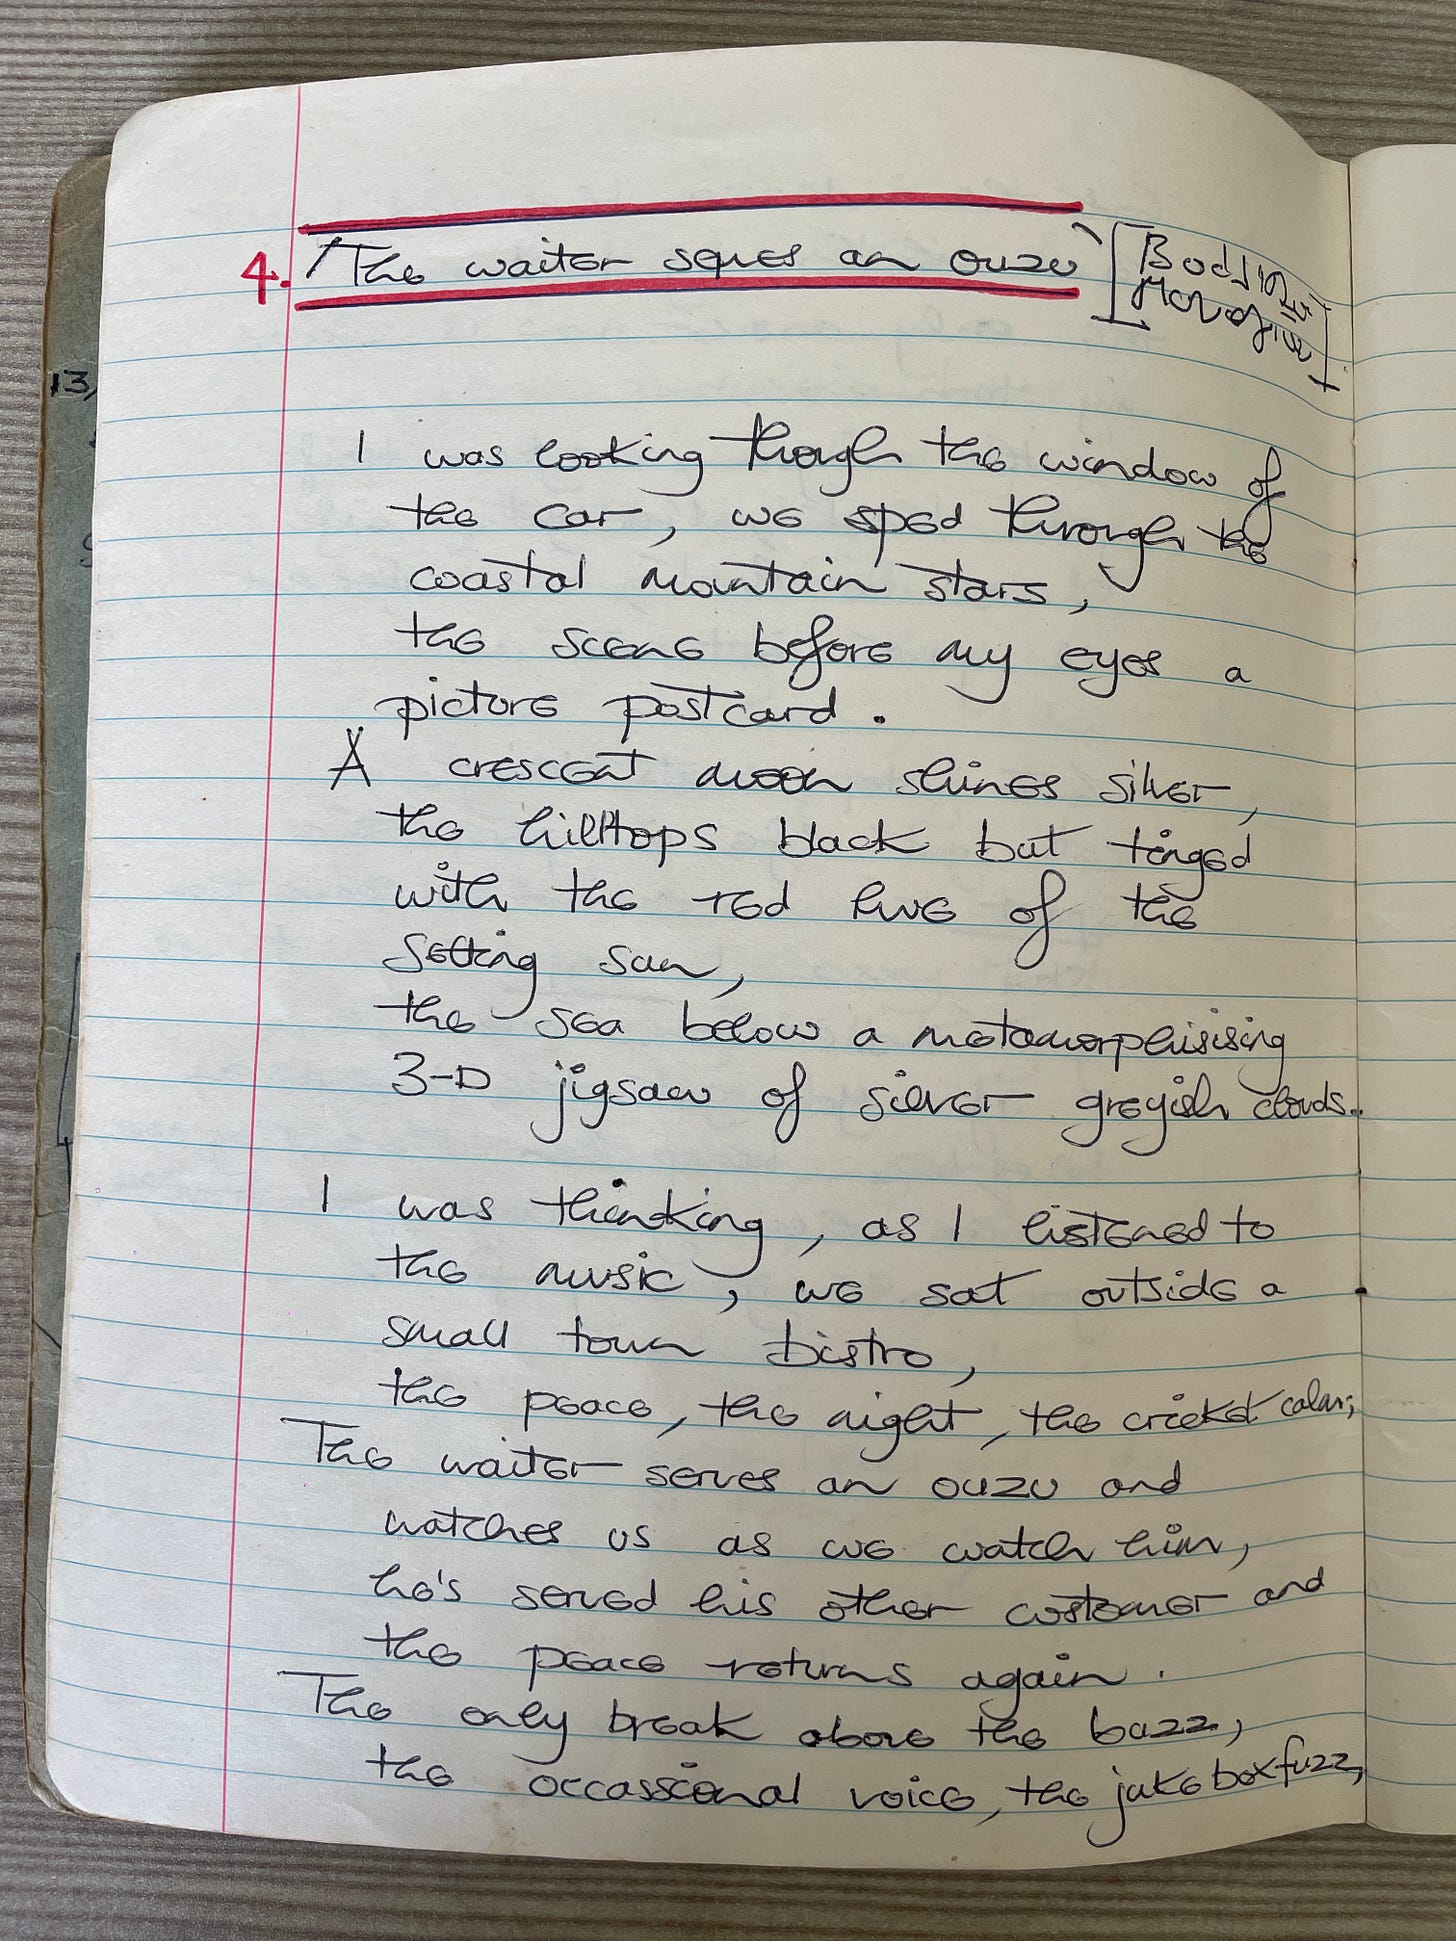 4. 'The waiter serves an ouzo'
I was looking though the window of
the car, we sped through the
coastal mountain stars,
the scene before my eyes a
picture postcard.
A crescent moon shines silver,
the hilltops black but tinged
with the red hue of the
setting sun,
the sea below a metamorphisising
3-D jigsaw of silver greyish clouds.
I was thinking, as I listened to
the music, we sat outside a
small town bistro,
the peace, the night, the cricket calm;
The waiter serves an ouzo and
watches us as we watch him,
he's served his other customer and
the peace returns again.
The only break above the buzz,
the occassional voice, the juke box fuzz,
13,